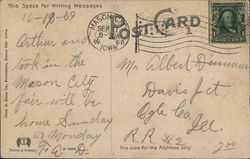 This Space for Writing Messages
10-18-69
POST CARD
MASON CITY
SEP
IOWA
Arthur and
took in the
Mason City
fair will be
home Sunday
or Monday
F. G. D.
Mr Albert Dummer
Davis Jct
Ogle Co.
Ill
R.R. #2
7.00
This side for the Address only